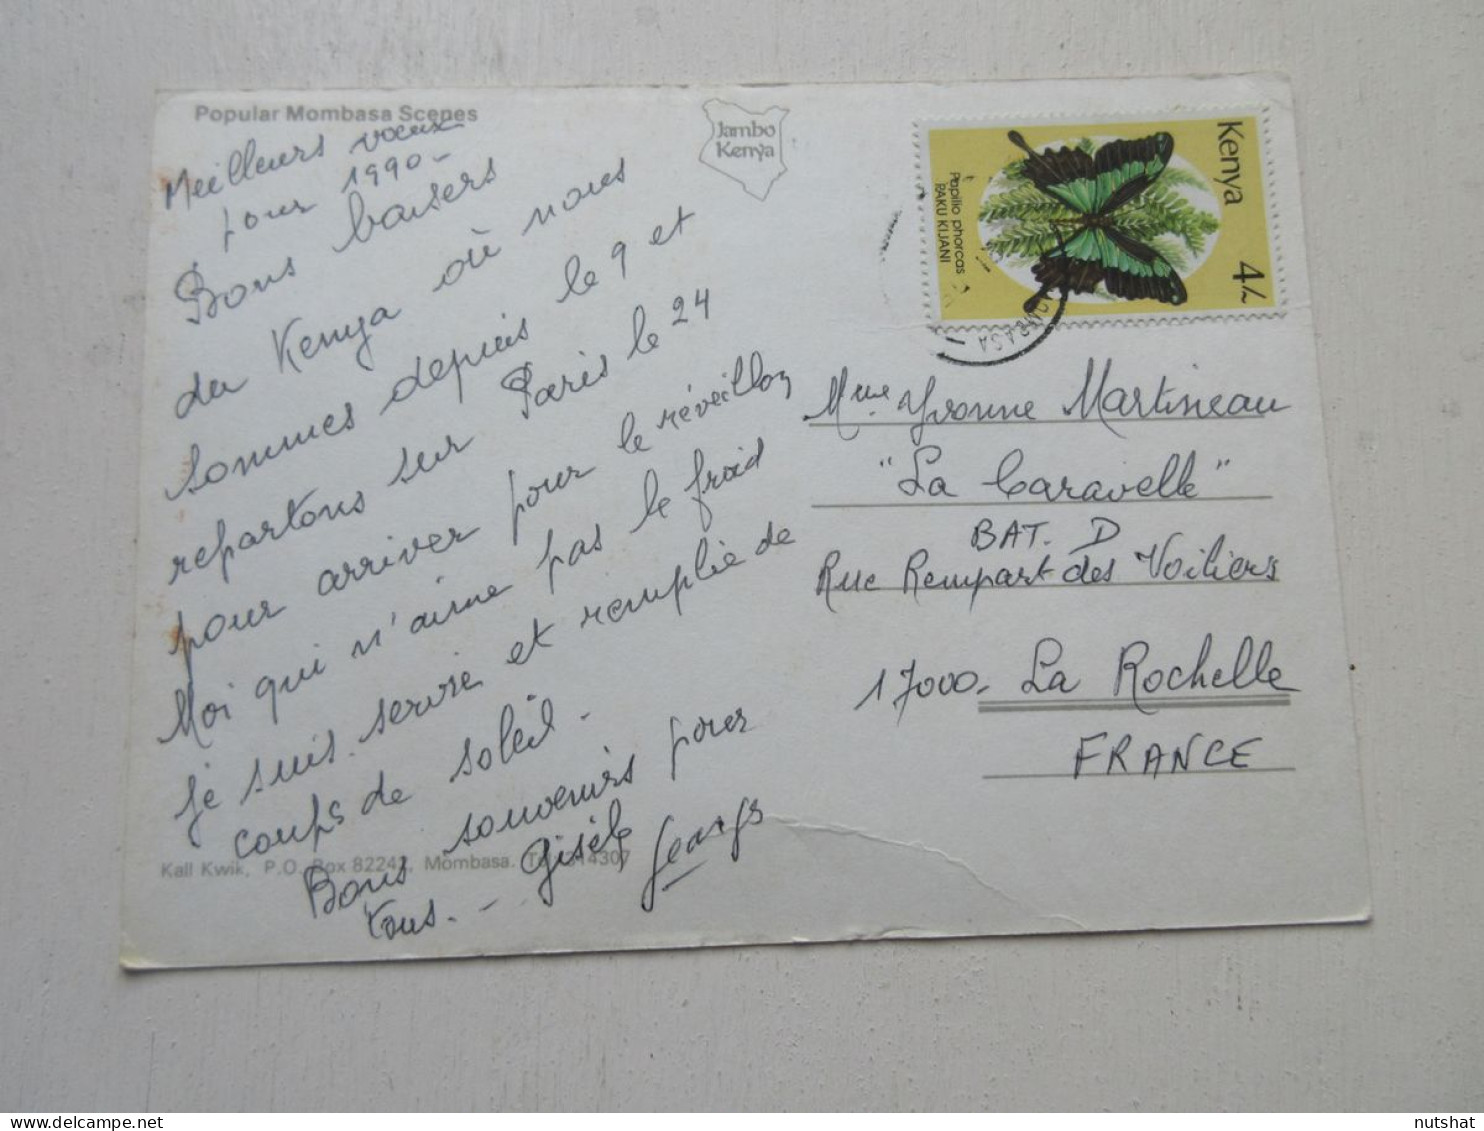 Popular Mombasa Scenes
Jambo
Kenya
Kenya
4/-
Papilio phorcas
RAKU KIJANI
MOMBASA
Meilleurs voeux
pour 1990 -
Bons baisers
du Kenya où nous
sommes depuis le 9 et
repartons sur Paris le 24
pour arriver pour le réveillon
Moi qui n'aime pas le froid
je suis servie et remplie de
coups de soleil -
Bons souvenirs pour
tous. - Gisèle
Georges
Kall Kwik, P.O. Box 82242, Mombasa. Tel 314307
Mme Yvonne Martineau
"La Caravelle"
BAT. D
Rue Rempart des Voiliers
17000 - La Rochelle
FRANCE
nutshat